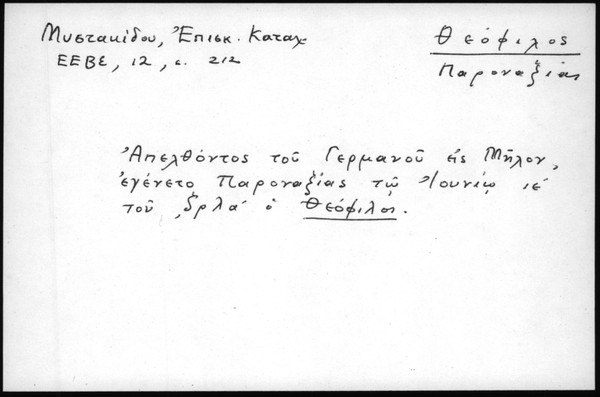 Μυστακίδου, Ἐπισκ. Κατάλ
ΕΕΒΣ, 12, σ. 212
Θεόφιλος
Παροναξίας
Ἀπελθόντος τοῦ Γερμανοῦ εἰς Μῆλον,
ἐγένετο Παροναξίας τῷ Ἰουνίῳ ιε´
τοῦ ͵ζρλα´ ὁ Θεόφιλος.